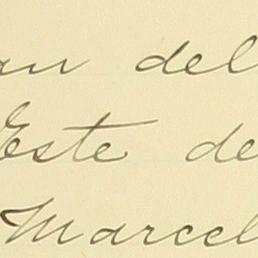 del
Este de
Marcel